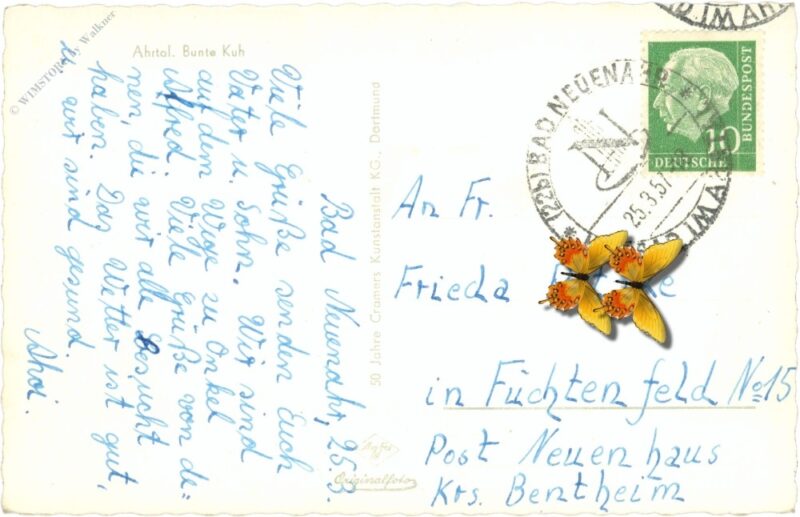 © WIMSTORE by Walkner
Ahrtal. Bunte Kuh
Bad Neuenahr, 25.3.
Viele Grüße senden Euch
Vater u. Sohn. Wir sind
auf dem Wege zu Onkel
Alfred. Viele Grüße von de-
nen, die wir alle besucht
haben. Das Wetter ist gut,
u. wir sind gesund.
Ahoi.
50 Jahre Cramers Kunstanstalt KG., Dortmund
Originalfoto
10
DEUTSCHE
BUNDESPOST
(22b) BAD NEUENAHR
25.3.57
BAD IM AHR
An Fr.
Frieda
in Füchtenfeld No 15
Post Neuenhaus
Krs. Bentheim